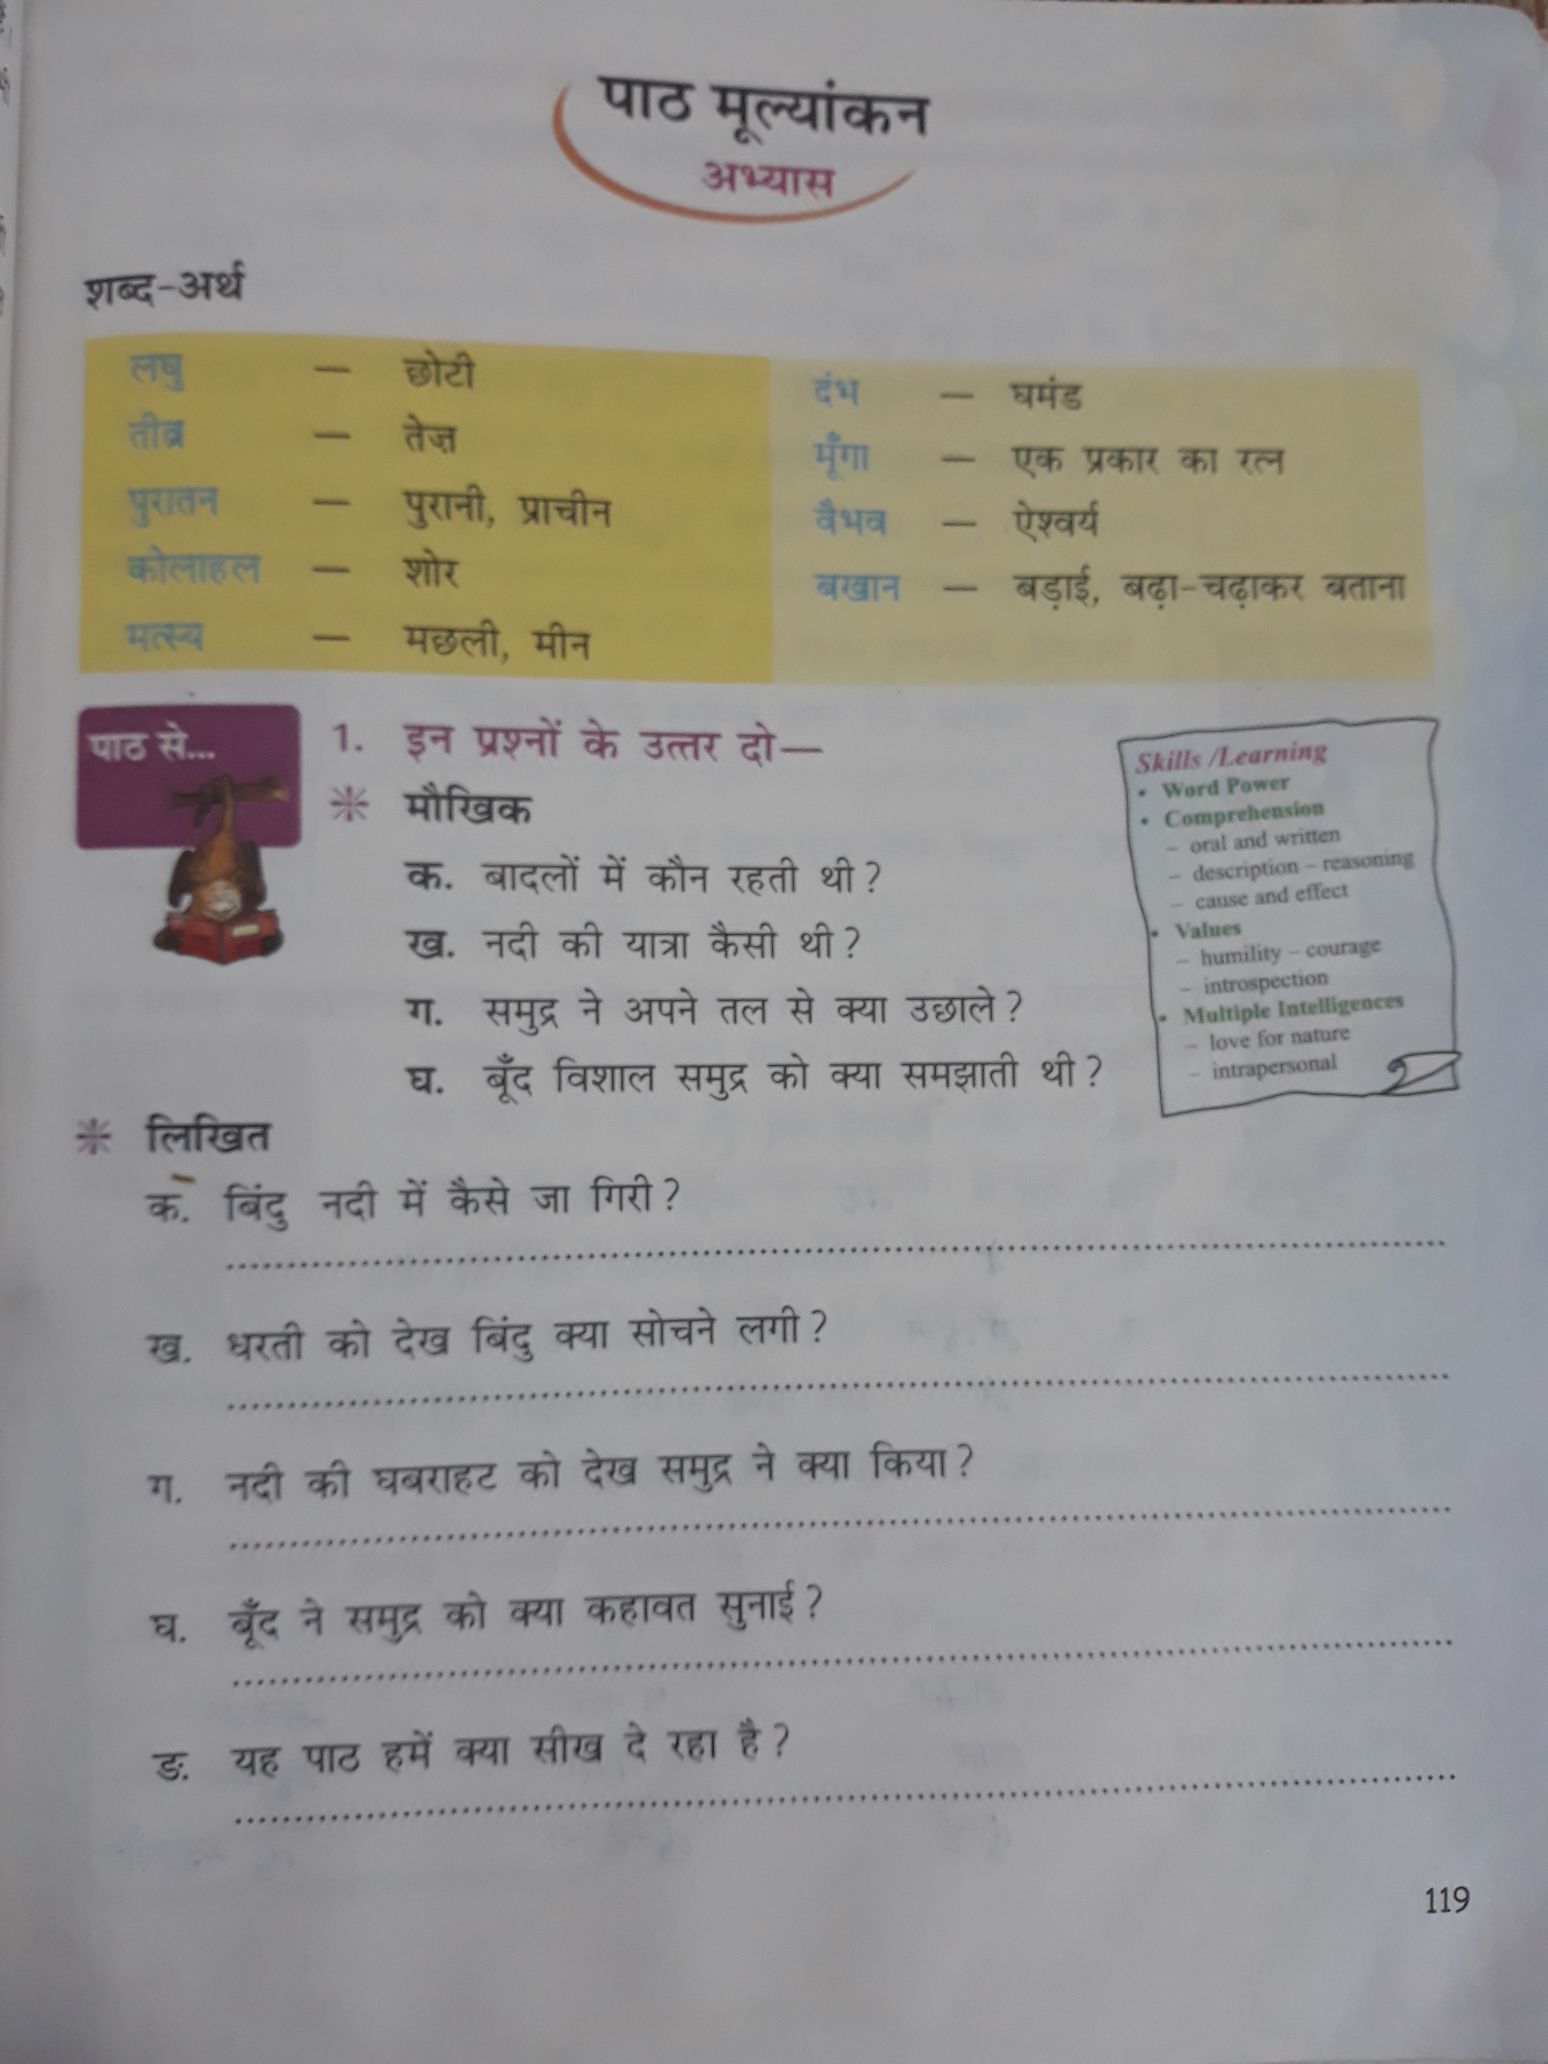 पाठ मूल्यांकन
अभ्यास
शब्द-अर्थ
लघु — छोटी
तीव्र — तेज़
पुरातन — पुरानी, प्राचीन
कोलाहल — शोर
मत्स्य — मछली, मीन
दंभ — घमंड
मूँगा — एक प्रकार का रत्न
वैभव — ऐश्वर्य
बखान — बड़ाई, बढ़ा-चढ़ाकर बताना
पाठ से...
1. इन प्रश्नों के उत्तर दो—
मौखिक
क. बादलों में कौन रहती थी?
ख. नदी की यात्रा कैसी थी?
ग. समुद्र ने अपने तल से क्या उछाले?
घ. बूँद विशाल समुद्र को क्या समझाती थी?
Skills /Learning
• Word Power
• Comprehension
– oral and written
– description – reasoning
– cause and effect
• Values
– humility – courage
– introspection
• Multiple Intelligences
– love for nature
– intrapersonal
लिखित
क. बिंदु नदी में कैसे जा गिरी?
ख. धरती को देख बिंदु क्या सोचने लगी?
ग. नदी की घबराहट को देख समुद्र ने क्या किया?
घ. बूँद ने समुद्र को क्या कहावत सुनाई?
ङ. यह पाठ हमें क्या सीख दे रहा है?
119